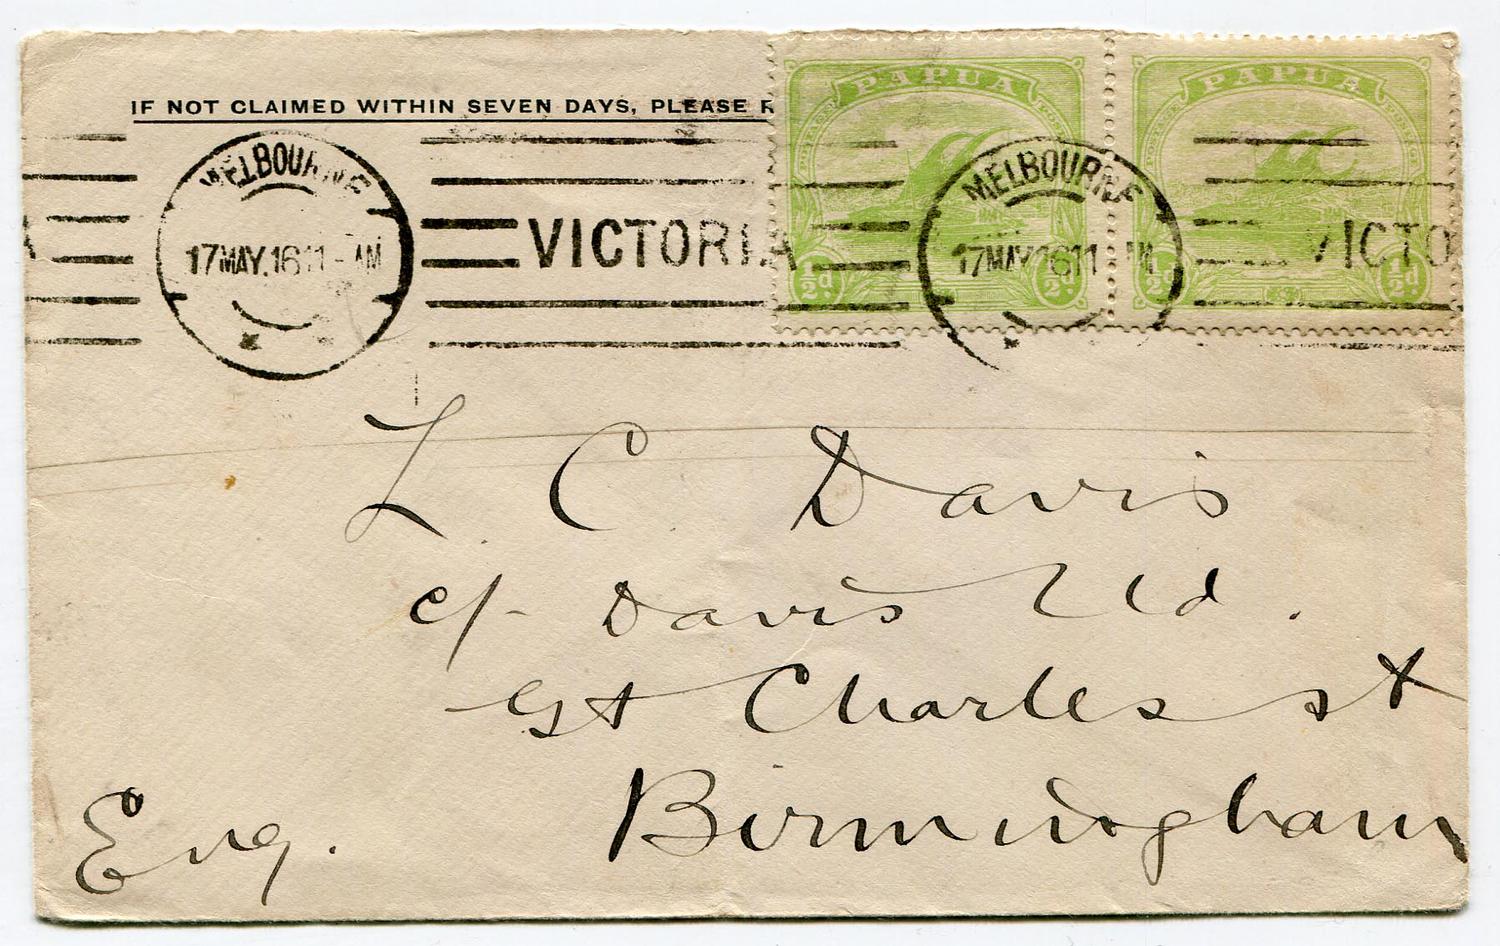 IF NOT CLAIMED WITHIN SEVEN DAYS, PLEASE
PAPUA
PAPUA
MELBOURNE
17 MAY.16 11 - AM
VICTORIA
MELBOURNE
17 MAY 16 11 AM
VICTO
½d.
½d.
½d
½d
L. C. Davis
c/- Davis Ltd.
Gt Charles st
Birmingham
Eng.